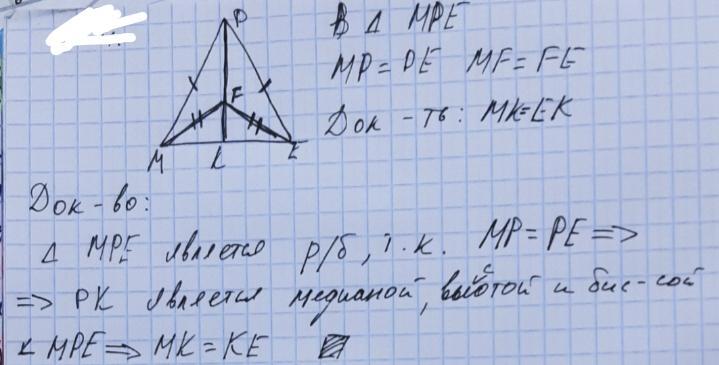 P
F
M
K
E
В Δ MPE
MP = PE MF = FE
Док - ть: MK = EK
Док - во:
Δ MPE является р/б, т.к. MP = PE =>
=> PK является медианой, высотой и бис-сой
∠ MPE => MK = KE